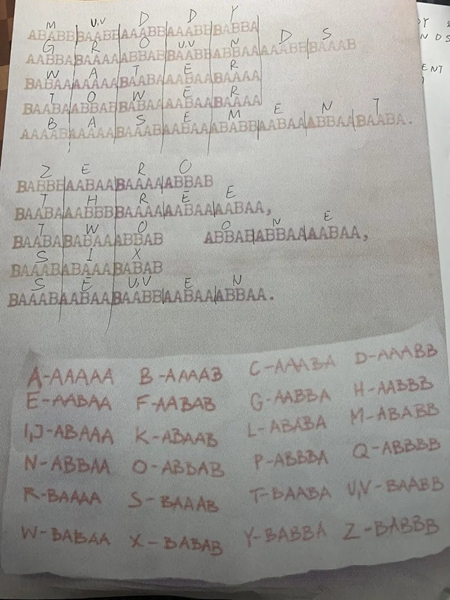 M U,V D D Y
ABABBBAABBAAABBAAABBBABBA
G R O U,V N D S
AABBABAAAAABBABBAABBABBAAAAABBBAAAB
W A T E R
BABAAAAAAABAABAAABAABAAAA
T O W E R
BAABAABBABBABAAAABAABAAAA
B A S E M E N T
AAAABAAAAABAAABAABAAABABBAABAAABBAABAABA.
Z E R O
BABBBAABAABAAAAABBAB
T H R E E
BAABAAABBBBAAAAAABAAAABAA,
T W O O N E
BAABABABAAABBAB ABBABABBAAAABAA,
S I X
BAAABABAAABABAB
S E U,V E N
BAAABAABAABAABBAABAAABBAA.
A-AAAAA B-AAAAB C-AAABA D-AAABB
E-AABAA F-AABAB G-AABBA H-AABBB
I,J-ABAAA K-ABAAB L-ABABA M-ABABB
N-ABBAA O-ABBAB P-ABBBA Q-ABBBB
R-BAAAA S-BAAAB T-BAABA U,V-BAABB
W-BABAA X-BABAB Y-BABBA Z-BABBB
NDS
ENT